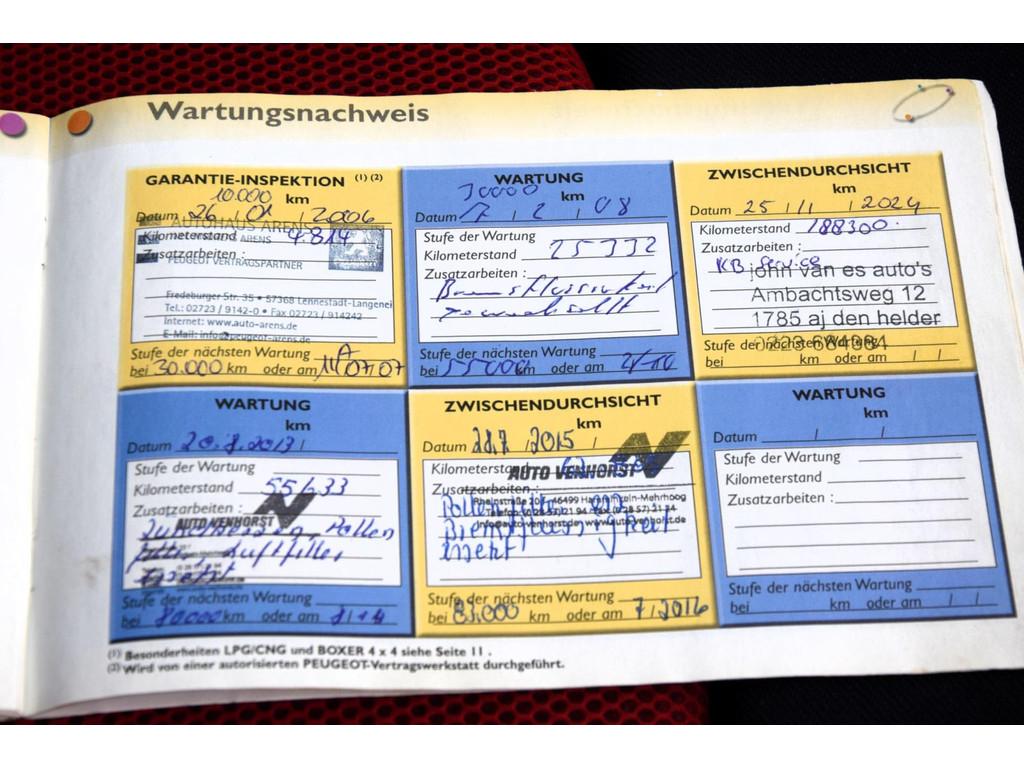 Wartungsnachweis
GARANTIE-INSPEKTION (1) (2)
10.000 km
Datum 26 / 01 / 2006
AUTOHAUS ARENS
Kilometerstand 9.814
Zusatzarbeiten :
PEUGEOT VERTRAGSPARTNER
Fredeburger Str. 35 • 57368 Lennestadt-Langenei
Tel.: 02723 / 9142-0 • Fax 02723 / 914242
Internet: www.auto-arens.de
E-Mail: info@peugeot-arens.de
Stufe der nächsten Wartung A
bei 30.000 km oder am
WARTUNG
30000 km
Datum 7 / 2 / 08
Stufe der Wartung
Kilometerstand 25332
Zusatzarbeiten :
Bremsflüssigkeit
gewechselt
Stufe der nächsten Wartung
bei 55000 km oder am
ZWISCHENDURCHSICHT
km
Datum 25 / 1 / 2024
Kilometerstand 188300.
Zusatzarbeiten :
KB Service
john van es auto's
Ambachtsweg 12
1785 aj den helder
Stufe der nächsten Wartung
bei km oder am / /
WARTUNG
km
Datum 20.8.2013 /
Stufe der Wartung
Kilometerstand 55633
Zusatzarbeiten :
AUTO VENHORST
Pollen
Luftfilter
ersetzt
Stufe der nächsten Wartung
bei 80000 km oder am
ZWISCHENDURCHSICHT
km
Datum 28.7 / 2015 /
Kilometerstand
AUTO VENHORST
Zusatzarbeiten :
46499 Hamminkeln-Mehrhoog
info@auto-venhorst.de www.auto-venhorst.de
Pollenfilter
Bremsflüssigkeit
ersetzt
Stufe der nächsten Wartung
bei 83.000 km oder am 7/2016
WARTUNG
km
Datum / /
Stufe der Wartung
Kilometerstand
Zusatzarbeiten :
Stufe der nächsten Wartung
bei km oder am / /
(1) Besonderheiten LPG/CNG und BOXER 4 x 4 siehe Seite 11 .
(2) Wird von einer autorisierten PEUGEOT-Vertragswerkstatt durchgeführt.